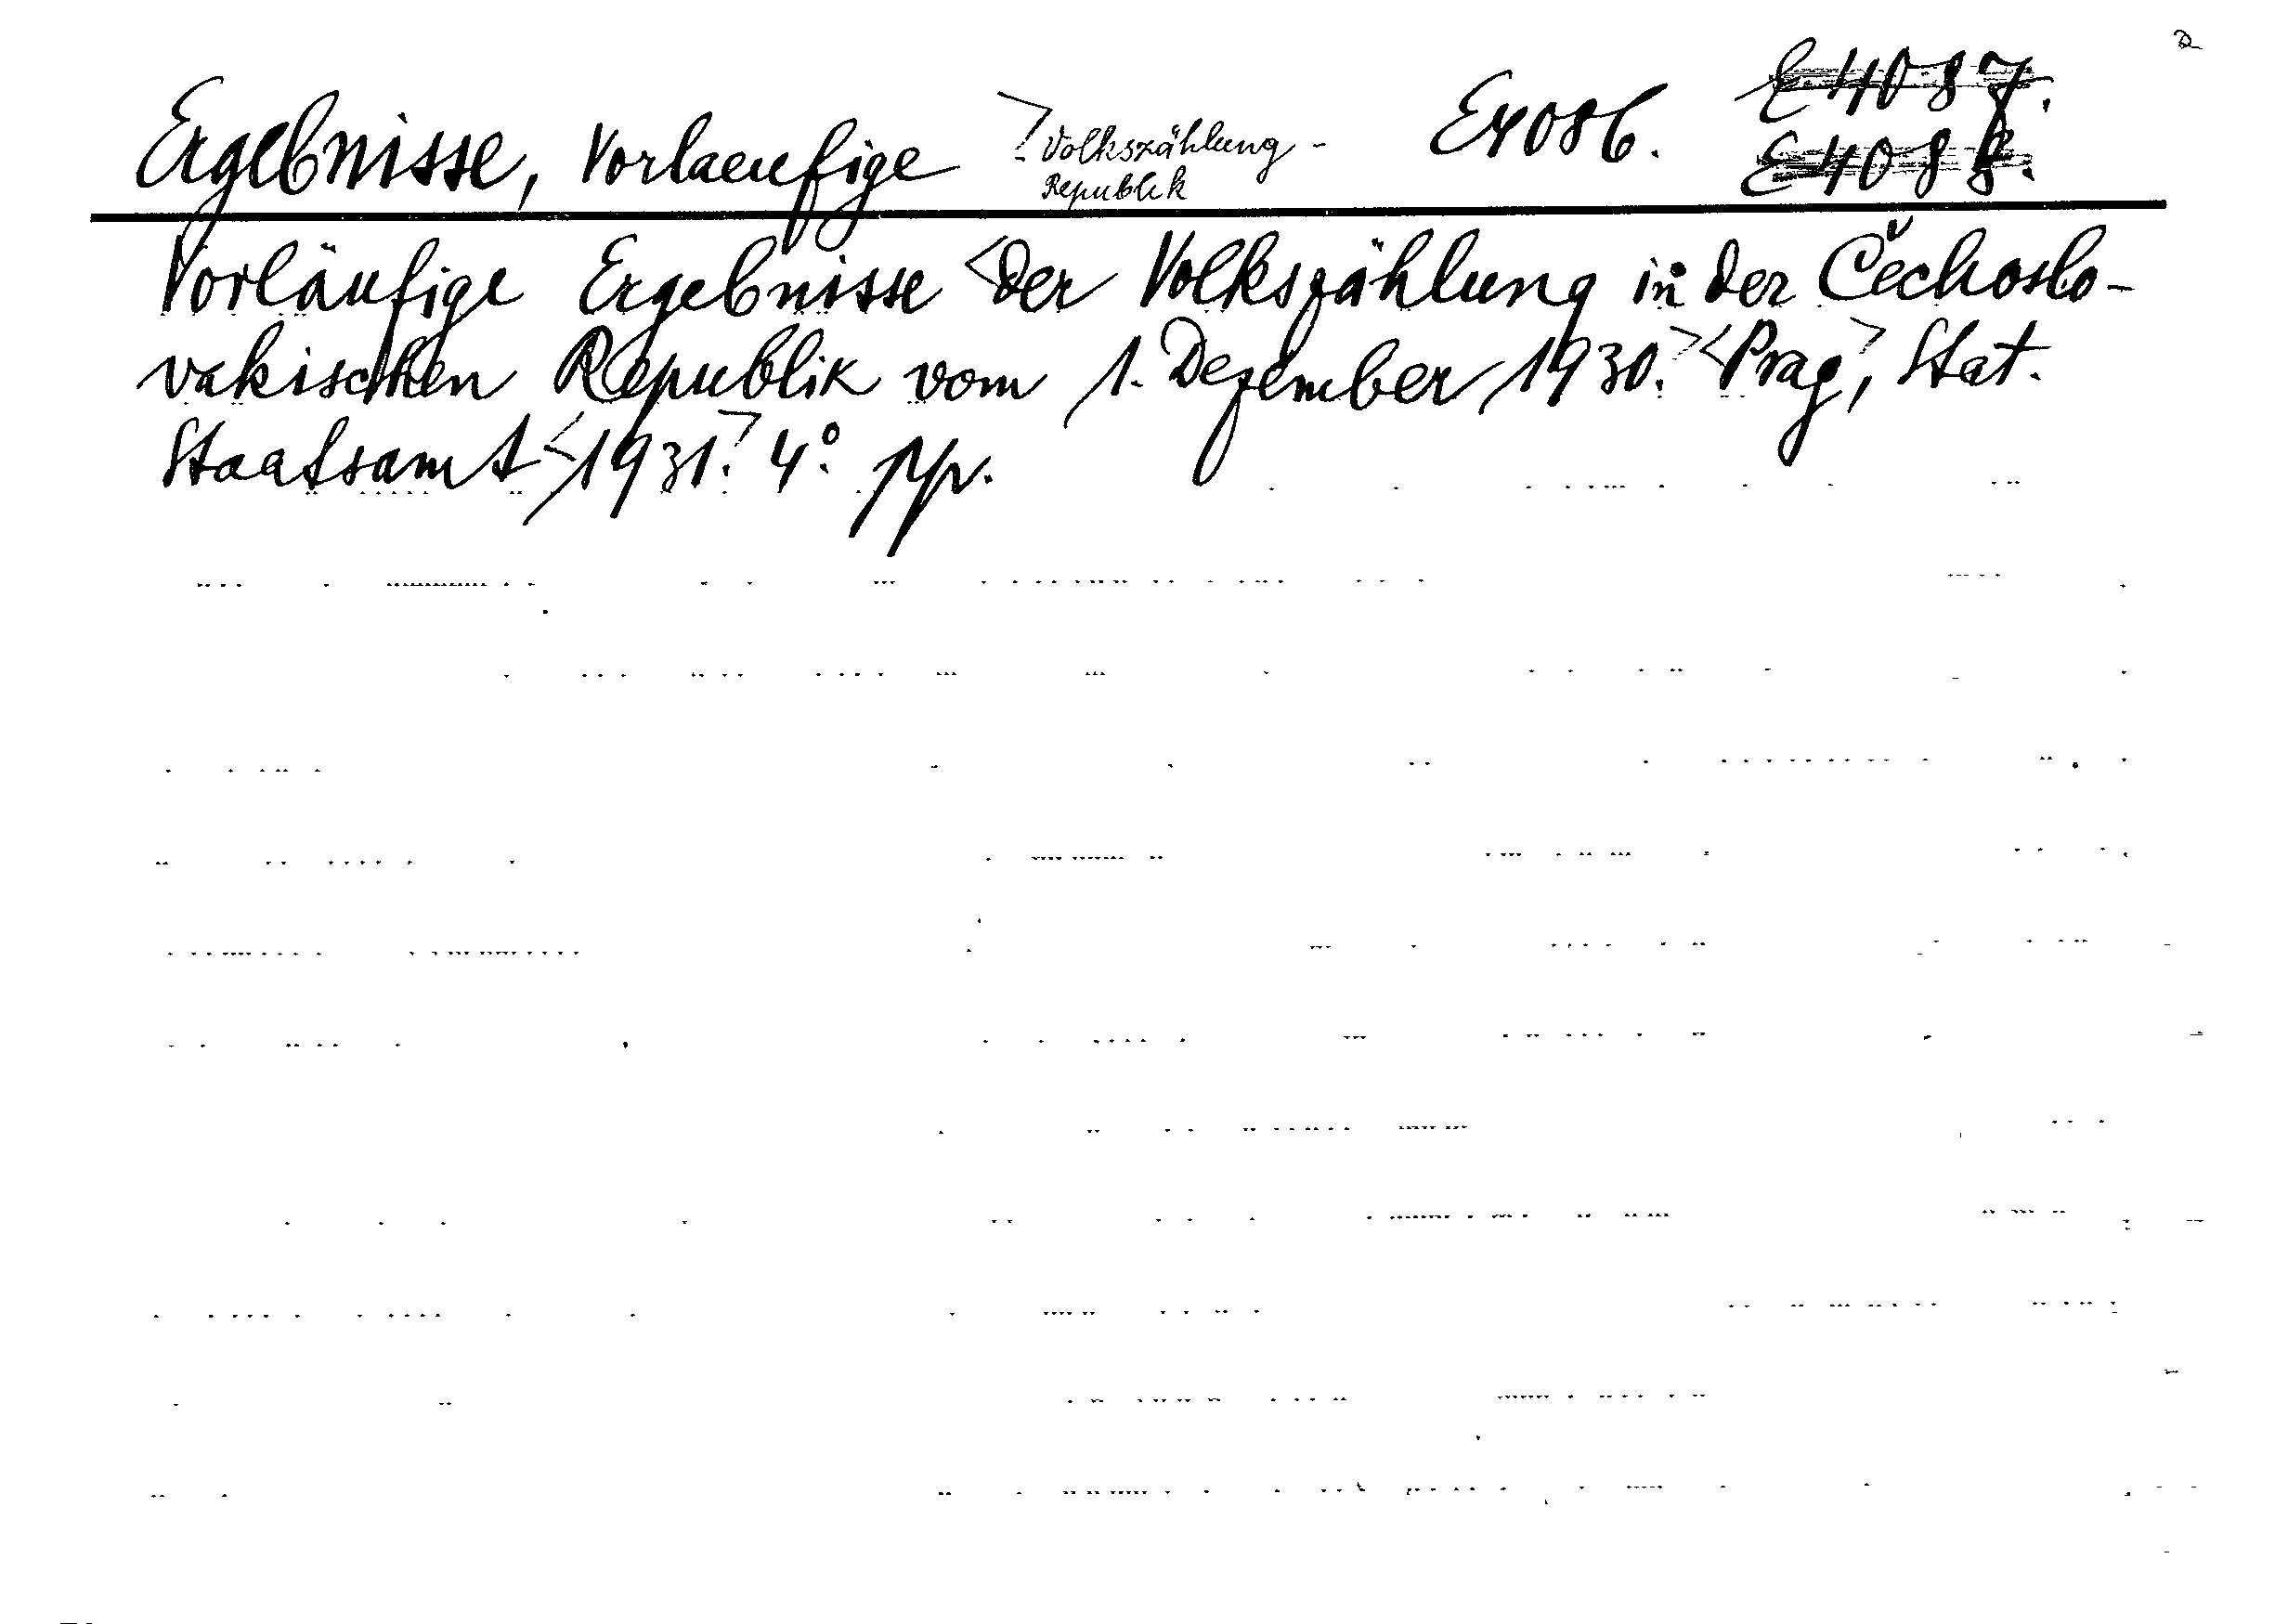 Ergebnisse, Vorlaeufige > ! Volkszählung - E4086. E4087.
Republik E4088.
Vorläufige Ergebnisse <der Volkszählung in der Čechoslo-
vakischen Republik vom 1. Dezember 1930.> <Prag>, Stat.
Staatsamt <1931.> 4°.